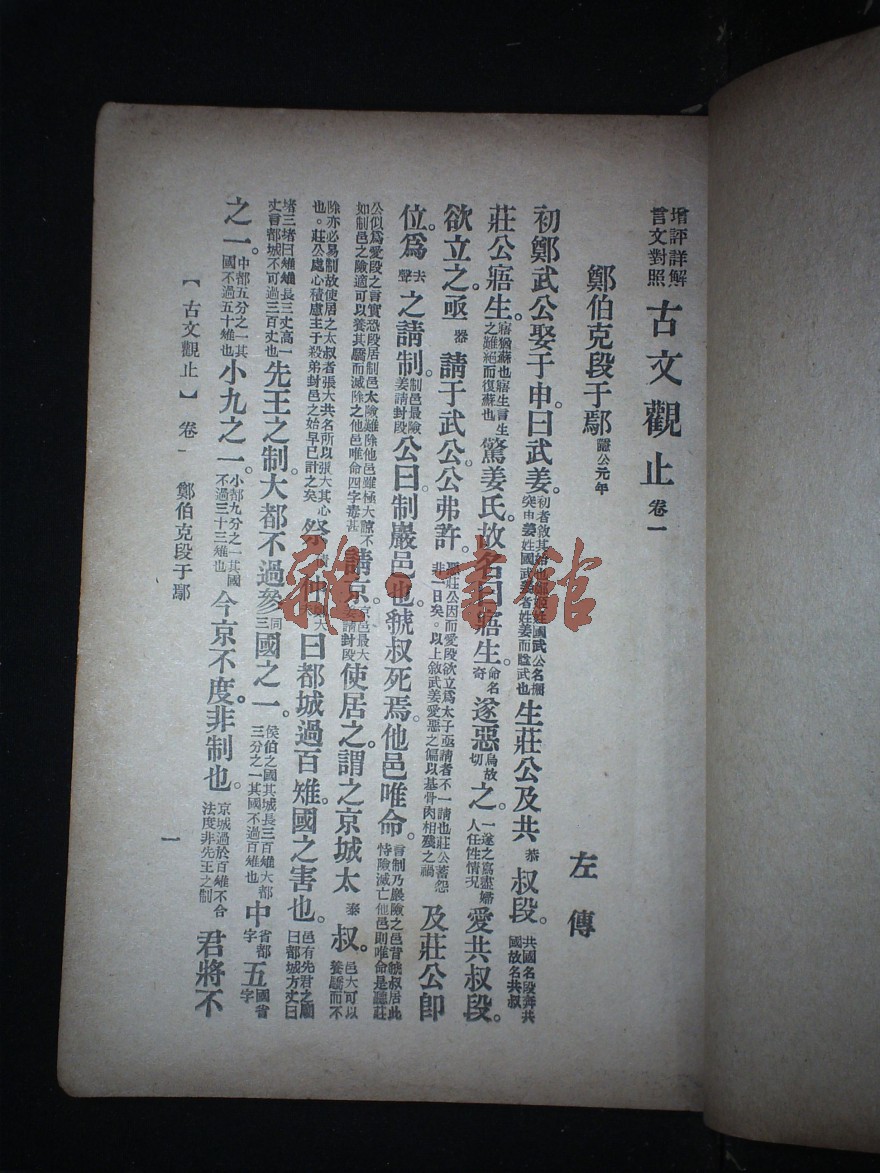 增評詳解言文對照 古文觀止 卷一
鄭伯克段于鄢 隱公元年 左傳
初鄭武公娶于申。曰武姜。初者敘其始也鄭姬姓國武公名掘突申姜姓國武姜者姓姜而諡武也生莊公及共恭叔段。共國名段奔共國故名共叔
莊公寤生。寤猶蘇也寤生言生之難絕而復蘇也驚姜氏。故名曰寤生。命名奇遂惡烏故切之。一遂之寫盡婦人任性情況愛共叔段。
欲立之。亟器請于武公。公弗許。惡莊公因而愛段欲立爲太子亟請者不一請也莊公蓄怨非一日矣。以上敘武姜愛惡之偏以基骨肉相殘之禍及莊公卽
位。爲去聲之請制。制邑最險姜請封段公曰制巖邑也。虢叔死焉。他邑唯命。言制乃巖險之邑昔虢叔居此恃險滅亡他邑則唯命是聽莊
公似爲愛段之言實恐段居制邑太險難除他邑雖極大諒不如制邑之險適可以養其驕而滅除之他邑唯命四字毒甚請京。京邑最大姜請封段使居之。謂之京城太泰叔。邑大可以養驕而不
除亦必易制故使居之太叔者張大其名所以張大其心也。莊公處心積慮主于殺弟封邑之始早已計之矣祭仲曰都城過百雉。國之害也。邑有先君之廟曰都城方丈曰
堵三堵曰雉雉長三丈高一丈言都城不可過三百丈也先王之制。大都不過參同三國之一。侯伯之國其城長三百雉大都三分之一其國不過百雉也中省都字五國省字
之一。中都五分之一其國不過五十雉也小九之一。小都九分之一其國不過三十三雉也今京不度。非制也。京城過於百雉不合法度非先王之制君將不
【古文觀止】 卷一 鄭伯克段于鄢 一
雜·書館